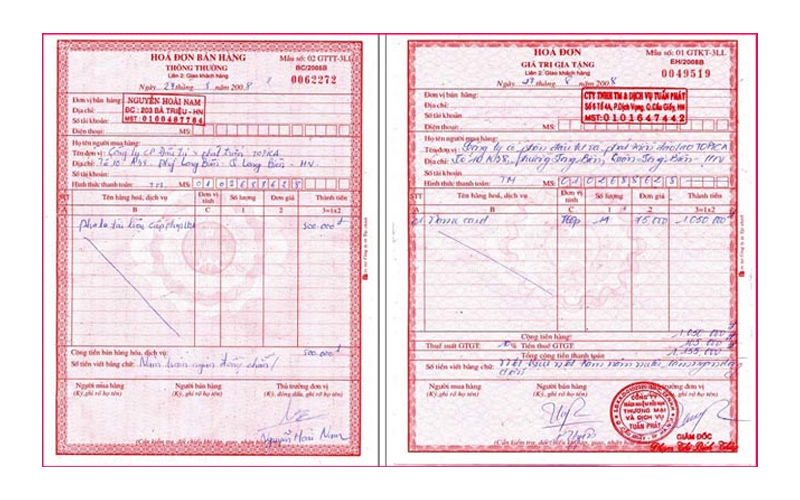 HOÁ ĐƠN BÁN HÀNG
THÔNG THƯỜNG
Liên 2: Giao khách hàng
Mẫu số: 02 GTTT-3LL
BC/2008B
0062272
Ngày 29 tháng 8 năm 2008
Đơn vị bán hàng: NGUYỄN HOÀI NAM
Địa chỉ: ĐC: 203 BÀ TRIỆU - HN
Số tài khoản: MST: 0100487764
Điện thoại: MS:
Họ tên người mua hàng:
Tên đơn vị: Công ty CP Đầu Tư & phát triển TOPCA
Địa chỉ: Tổ 10 Long Biên - Q Long Biên - HN
Số tài khoản:
Hình thức thanh toán: TM MS: 0102688628
STT Tên hàng hoá, dịch vụ Đơn vị tính Số lượng Đơn giá Thành tiền
A B C 1 2 3=1x2
500.000đ
Cộng tiền bán hàng hóa, dịch vụ: 500.000đ
Số tiền viết bằng chữ: Năm trăm ngàn đồng chẵn
Người mua hàng Người bán hàng Thủ trưởng đơn vị
(Ký, ghi rõ họ tên) (Ký, ghi rõ họ tên) (Ký, đóng dấu, ghi rõ họ tên)
Nguyễn Hoài Nam
HOÁ ĐƠN
GIÁ TRỊ GIA TĂNG
Liên 2: Giao khách hàng
Mẫu số: 01 GTKT-3LL
EH/2008B
0049519
Ngày 29 tháng 8 năm 2008
Đơn vị bán hàng: CTY TNHH TM & DỊCH VỤ TUẤN PHÁT
Địa chỉ: Số 6 Tổ 4A, P.Dịch Vọng, Q.Cầu Giấy, HN
Số tài khoản: MST: 0101647442
Điện thoại: MS:
Họ tên người mua hàng:
Tên đơn vị: Công ty cổ phần đầu tư và phát triển TOPCA
Địa chỉ: Tổ 10 phường Long Biên, Quận Long Biên - HN
Số tài khoản:
Hình thức thanh toán: TM MS: 0102688628
STT Tên hàng hoá, dịch vụ Đơn vị tính Số lượng Đơn giá Thành tiền
A B C 1 2 3=1x2
card Hộp 14 75.000 1.050.000đ
Cộng tiền hàng: 1.050.000đ
Thuế suất GTGT: 10% Tiền thuế GTGT: 105.000đ
Tổng cộng tiền thanh toán 1.155.000đ
Số tiền viết bằng chữ: Một triệu một trăm năm mươi lăm ngàn đồng
Người mua hàng Người bán hàng
(Ký, ghi rõ họ tên) (Ký, ghi rõ họ tên)
CÔNG TY
TRÁCH NHIỆM HỮU HẠN
THƯƠNG MẠI
VÀ DỊCH VỤ
TUẤN PHÁT
GIÁM ĐỐC